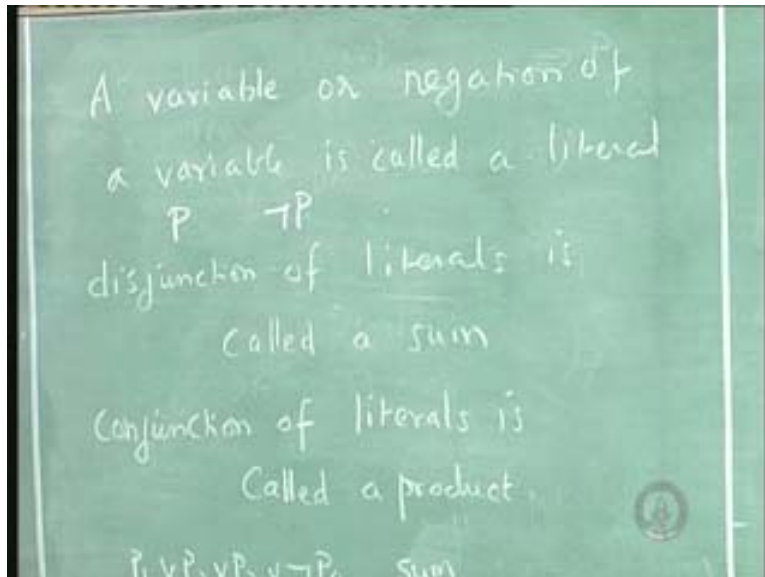 A variable or negation of
a variable is called a literal
P ¬P
disjunction of literals is
Called a sum
Conjunction of literals is
Called a product.
P₁ ∨ P₂ ∨ P₃ ∨ ¬P₄ sum